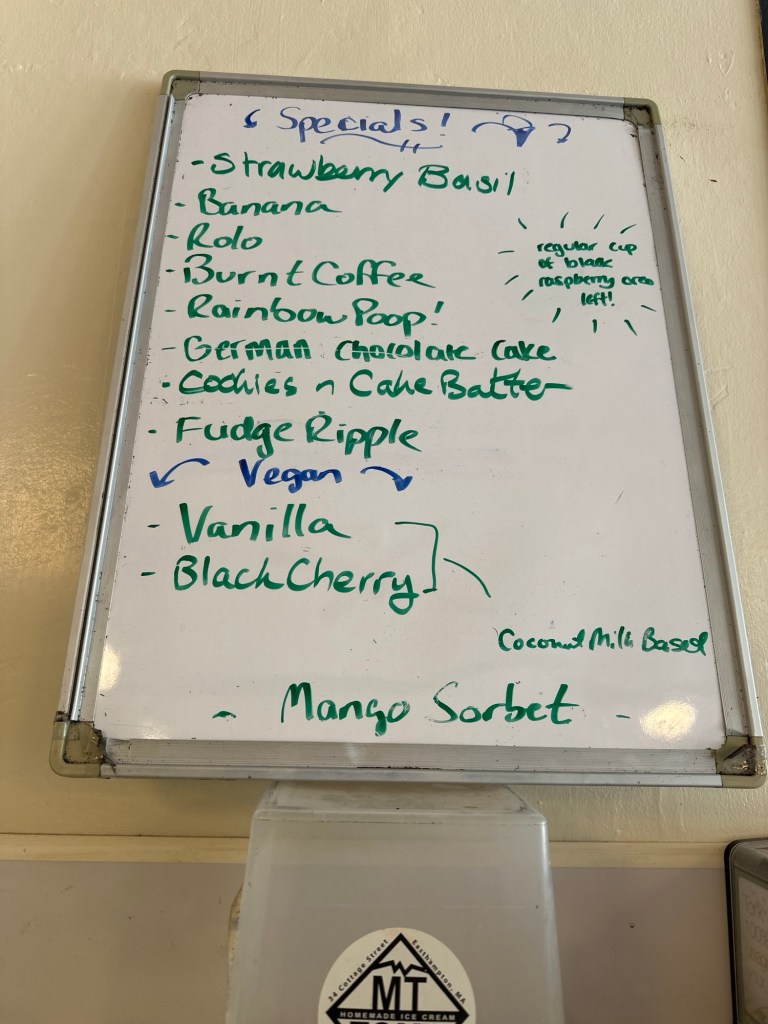 Specials!
- Strawberry Basil
- Banana
- Rolo
- Burnt Coffee
- Rainbow Poop!
- German Chocolate Cake
- Cookies n Cake Batter
- Fudge Ripple
regular cup
of black
raspberry oreo
left!
Vegan
- Vanilla
- Black Cherry
Coconut Milk Based
- Mango Sorbet -
34 Cottage Street
Easthampton, MA.
MT
HOMEMADE ICE CREAM